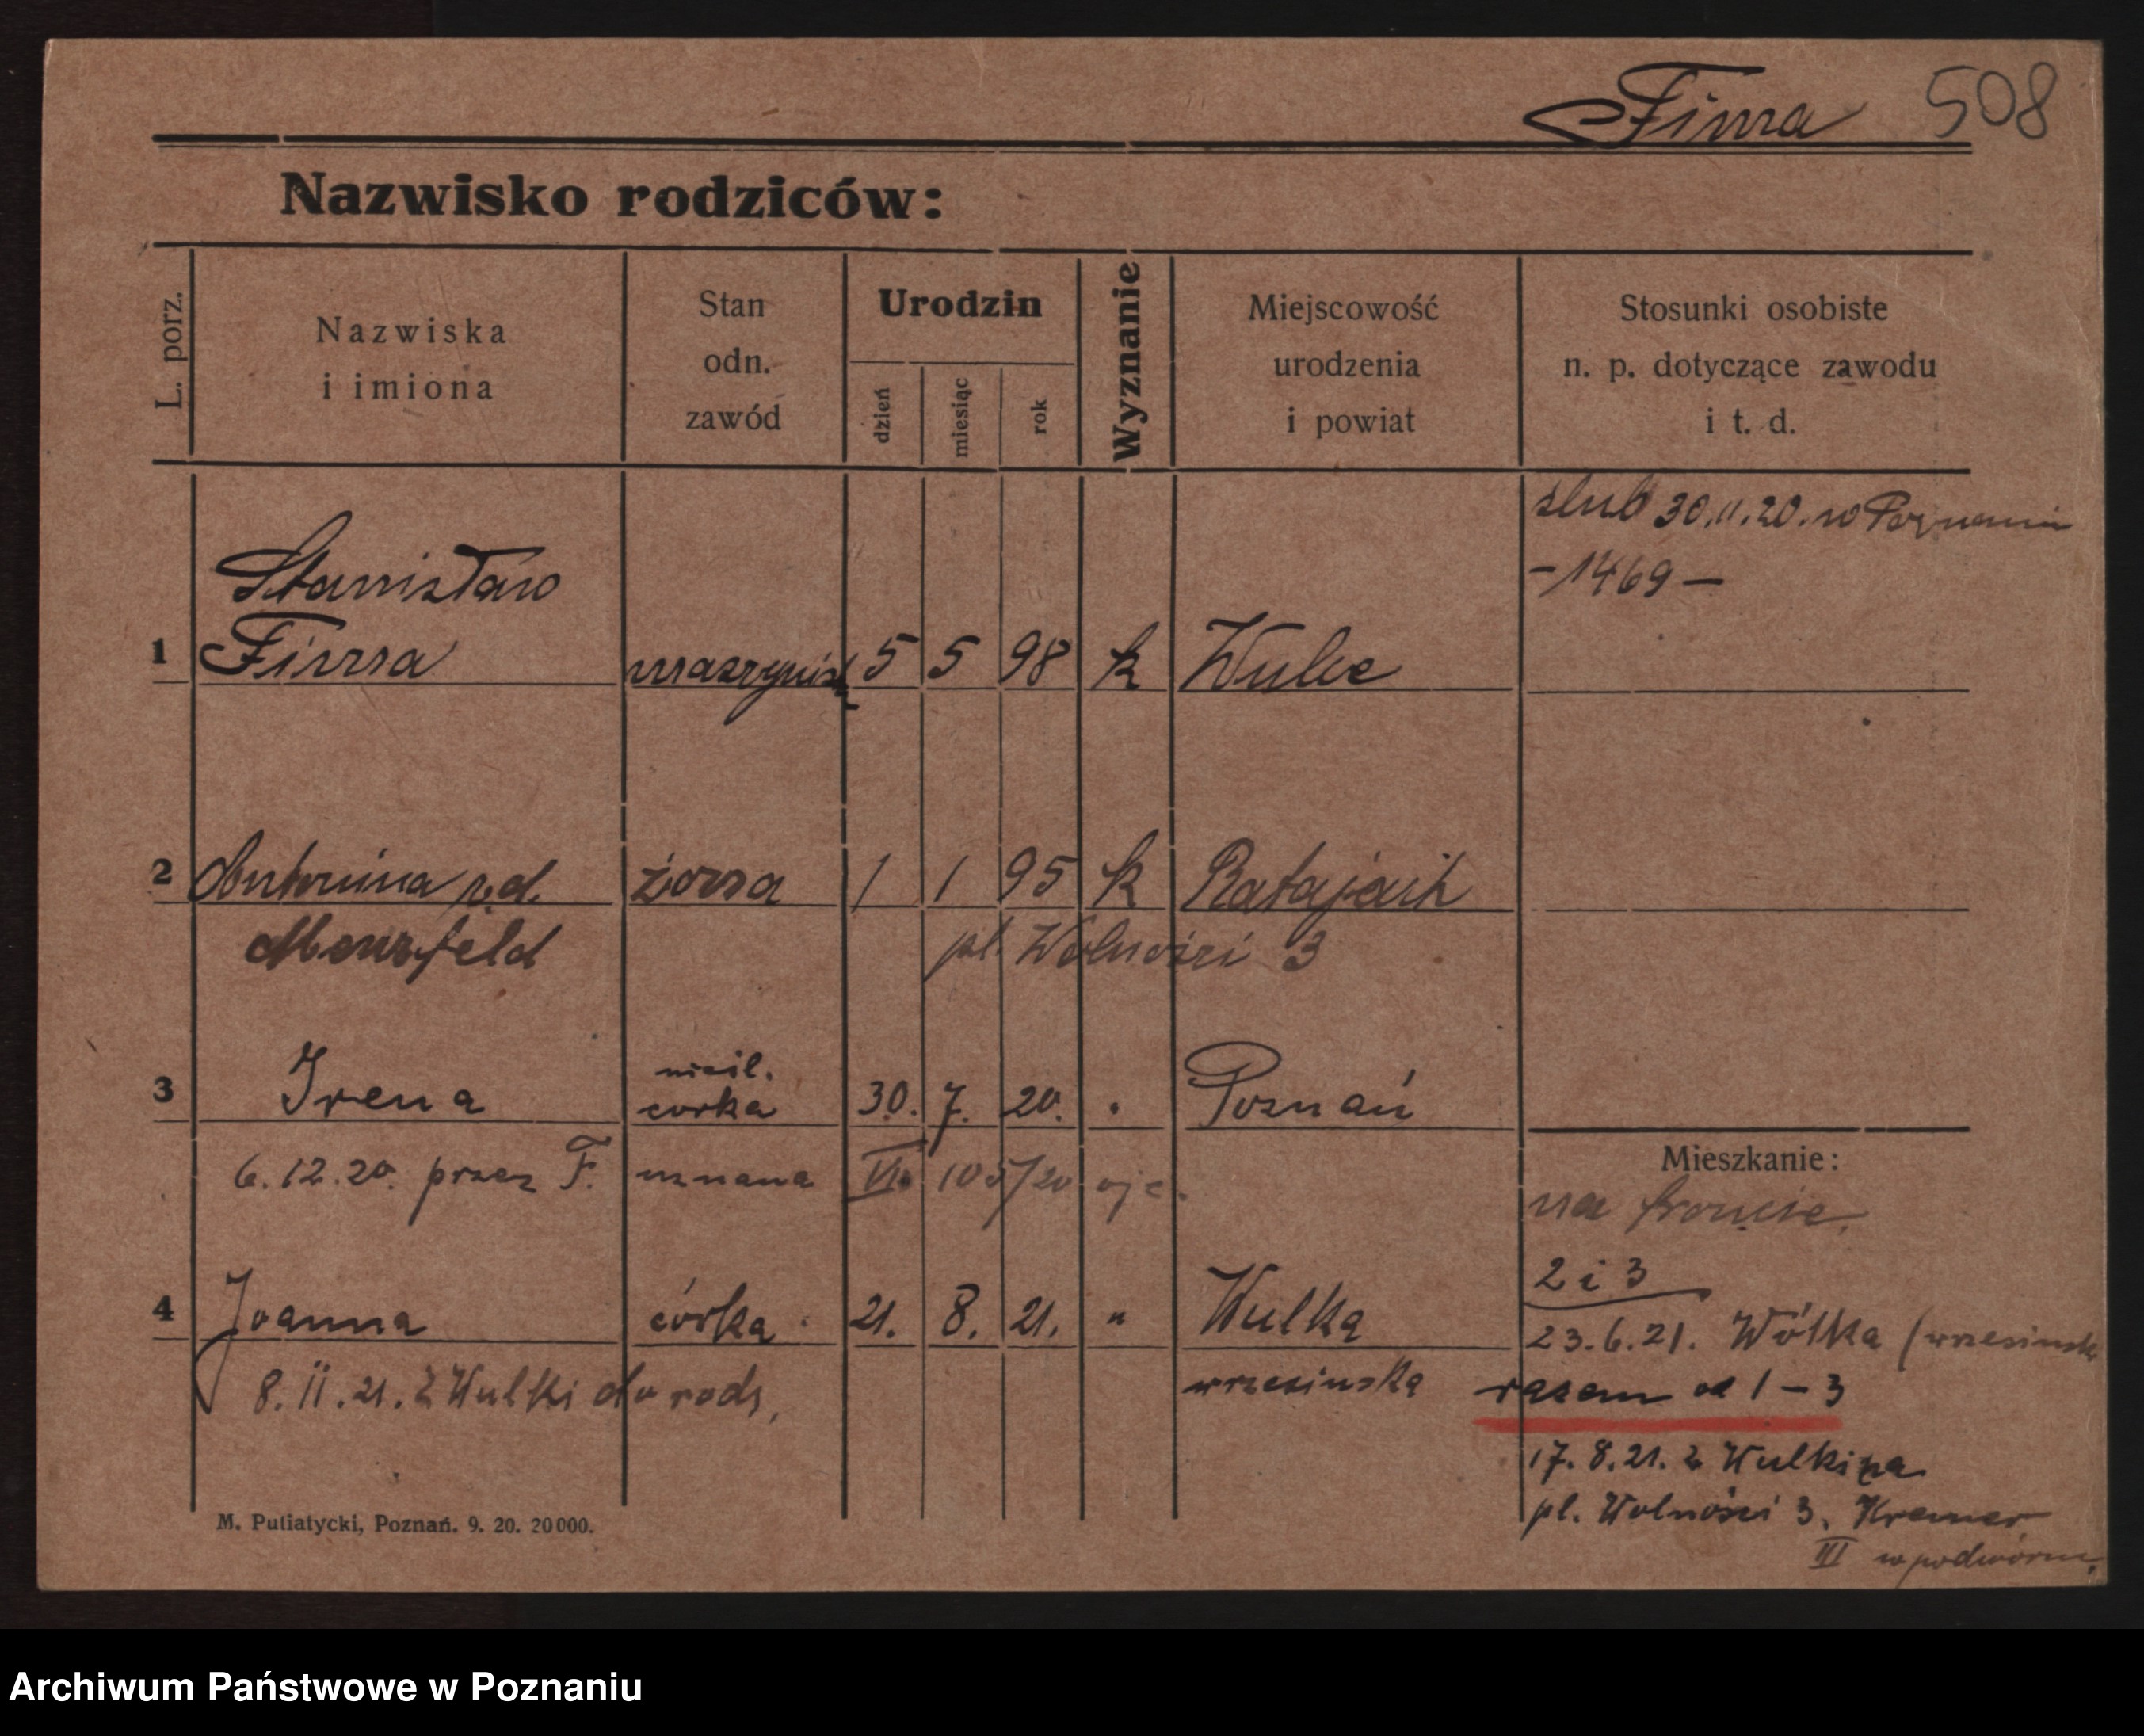 Fima 508
Nazwisko rodziców:
L. porz.
Nazwiska
i imiona
Stan
odn.
zawód
Urodzin
dzień
miesiąc
rok
Wyznanie
Miejscowość
urodzenia
i powiat
Stosunki osobiste
n. p. dotyczące zawodu
i t. d.
ślub 30.11.20. w Poznaniu
-1469-
Stanisław
1 Fima maszynista 5 5 98 k Wulce
2 Antonina r.d. żona 1 1 95 k Ratajach
pl. Wolności 3
nieśl.
3 Irena corka 30. 7. 20. " Poznań
6.12.20. przez F. uznana VIa 105/20 ojc.
Mieszkanie:
na froncie
2 i 3
4 Joanna córka 21. 8. 21. " Wulka
23.6.21. Wólka (wrzesińsk
8.11.21. z Wulki do rodz. wrzesińska
razem od 1-3
17.8.21. z Wulki na
pl. Wolności 3, Kremer
III w podwórzu.
M. Putiatycki, Poznań. 9. 20. 20000.
Archiwum Państwowe w Poznaniu